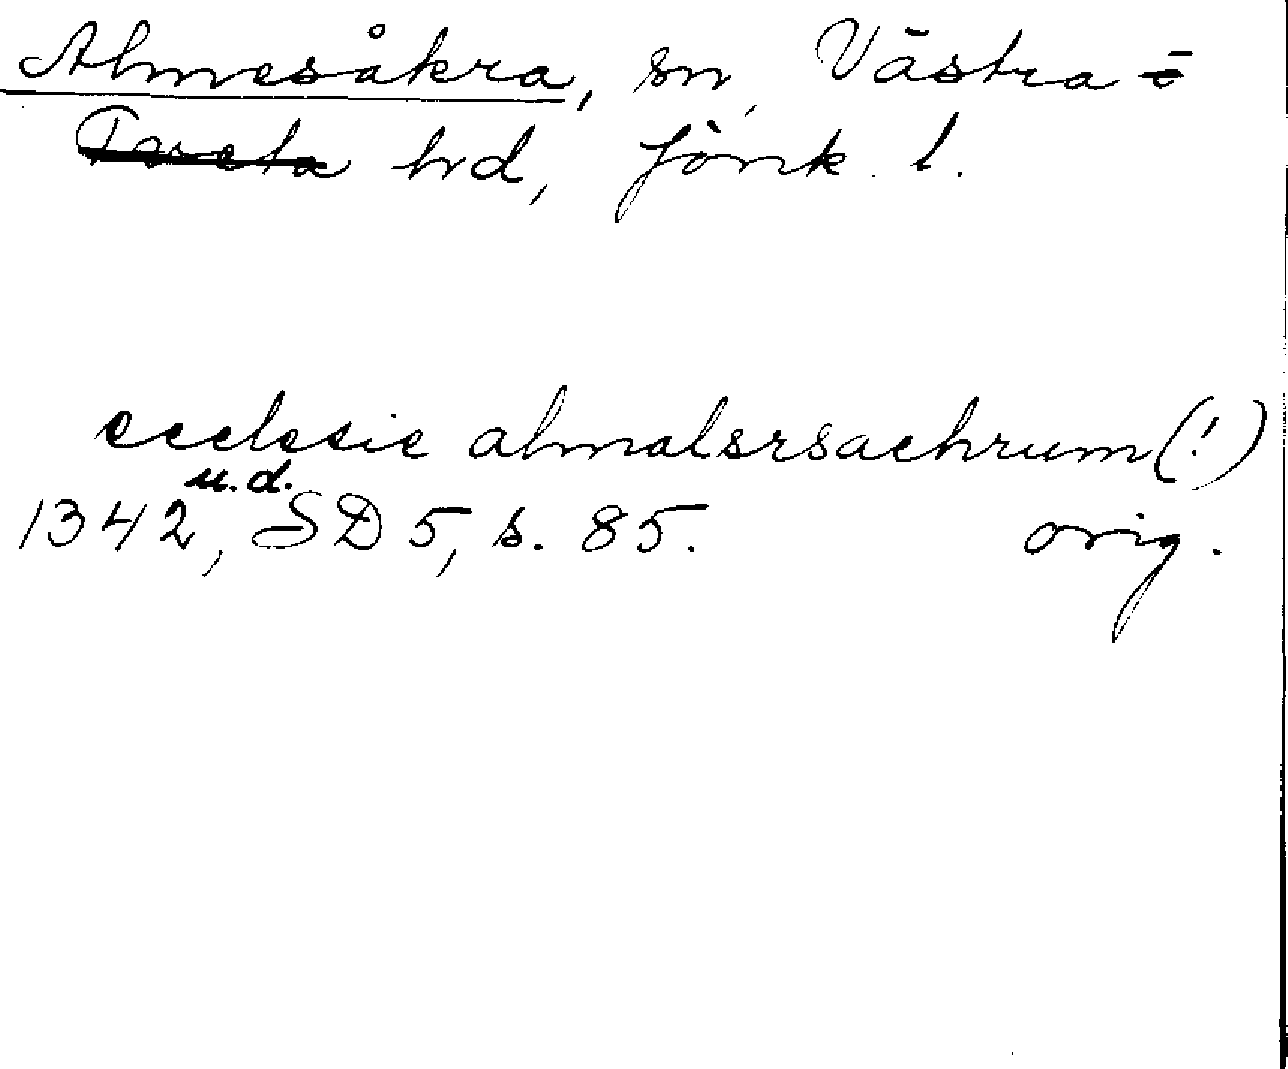 Almesåkra, sn, Västra
Tveta hd, Jönk. l.
ecclesie almalsrsachrum(!)
u.d.
1342, SD 5, s. 85. orig.